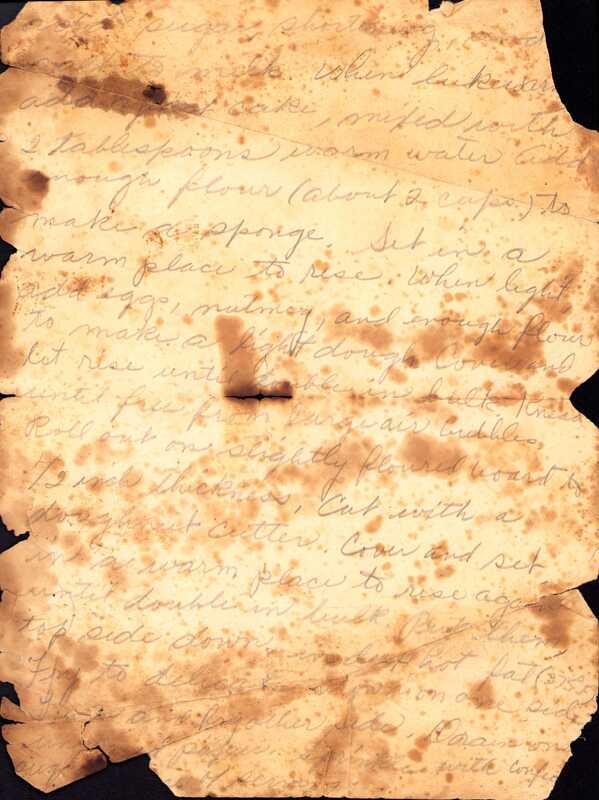 sugar, shortening, and
to milk. When lukewarm
add yeast cake, mixed with
2 tablespoons warm water Add
enough flour (about 2 cups) to
make a sponge. Set in a
warm place to rise When light,
add eggs, nutmeg, and enough flour
to make a light dough Cover and
let rise until double in bulk. Knead
until free from large air bubbles.
Roll out on slightly floured board to
1/2 inch thickness, Cut with a
doughnut cutter. Cover and set
in a warm place to rise again
until double in bulk Put them
top side down in hot fat (375
Fry to delicate brown on one side
and brown other side, Drain on
paper. Sprinkle with confec
sugar